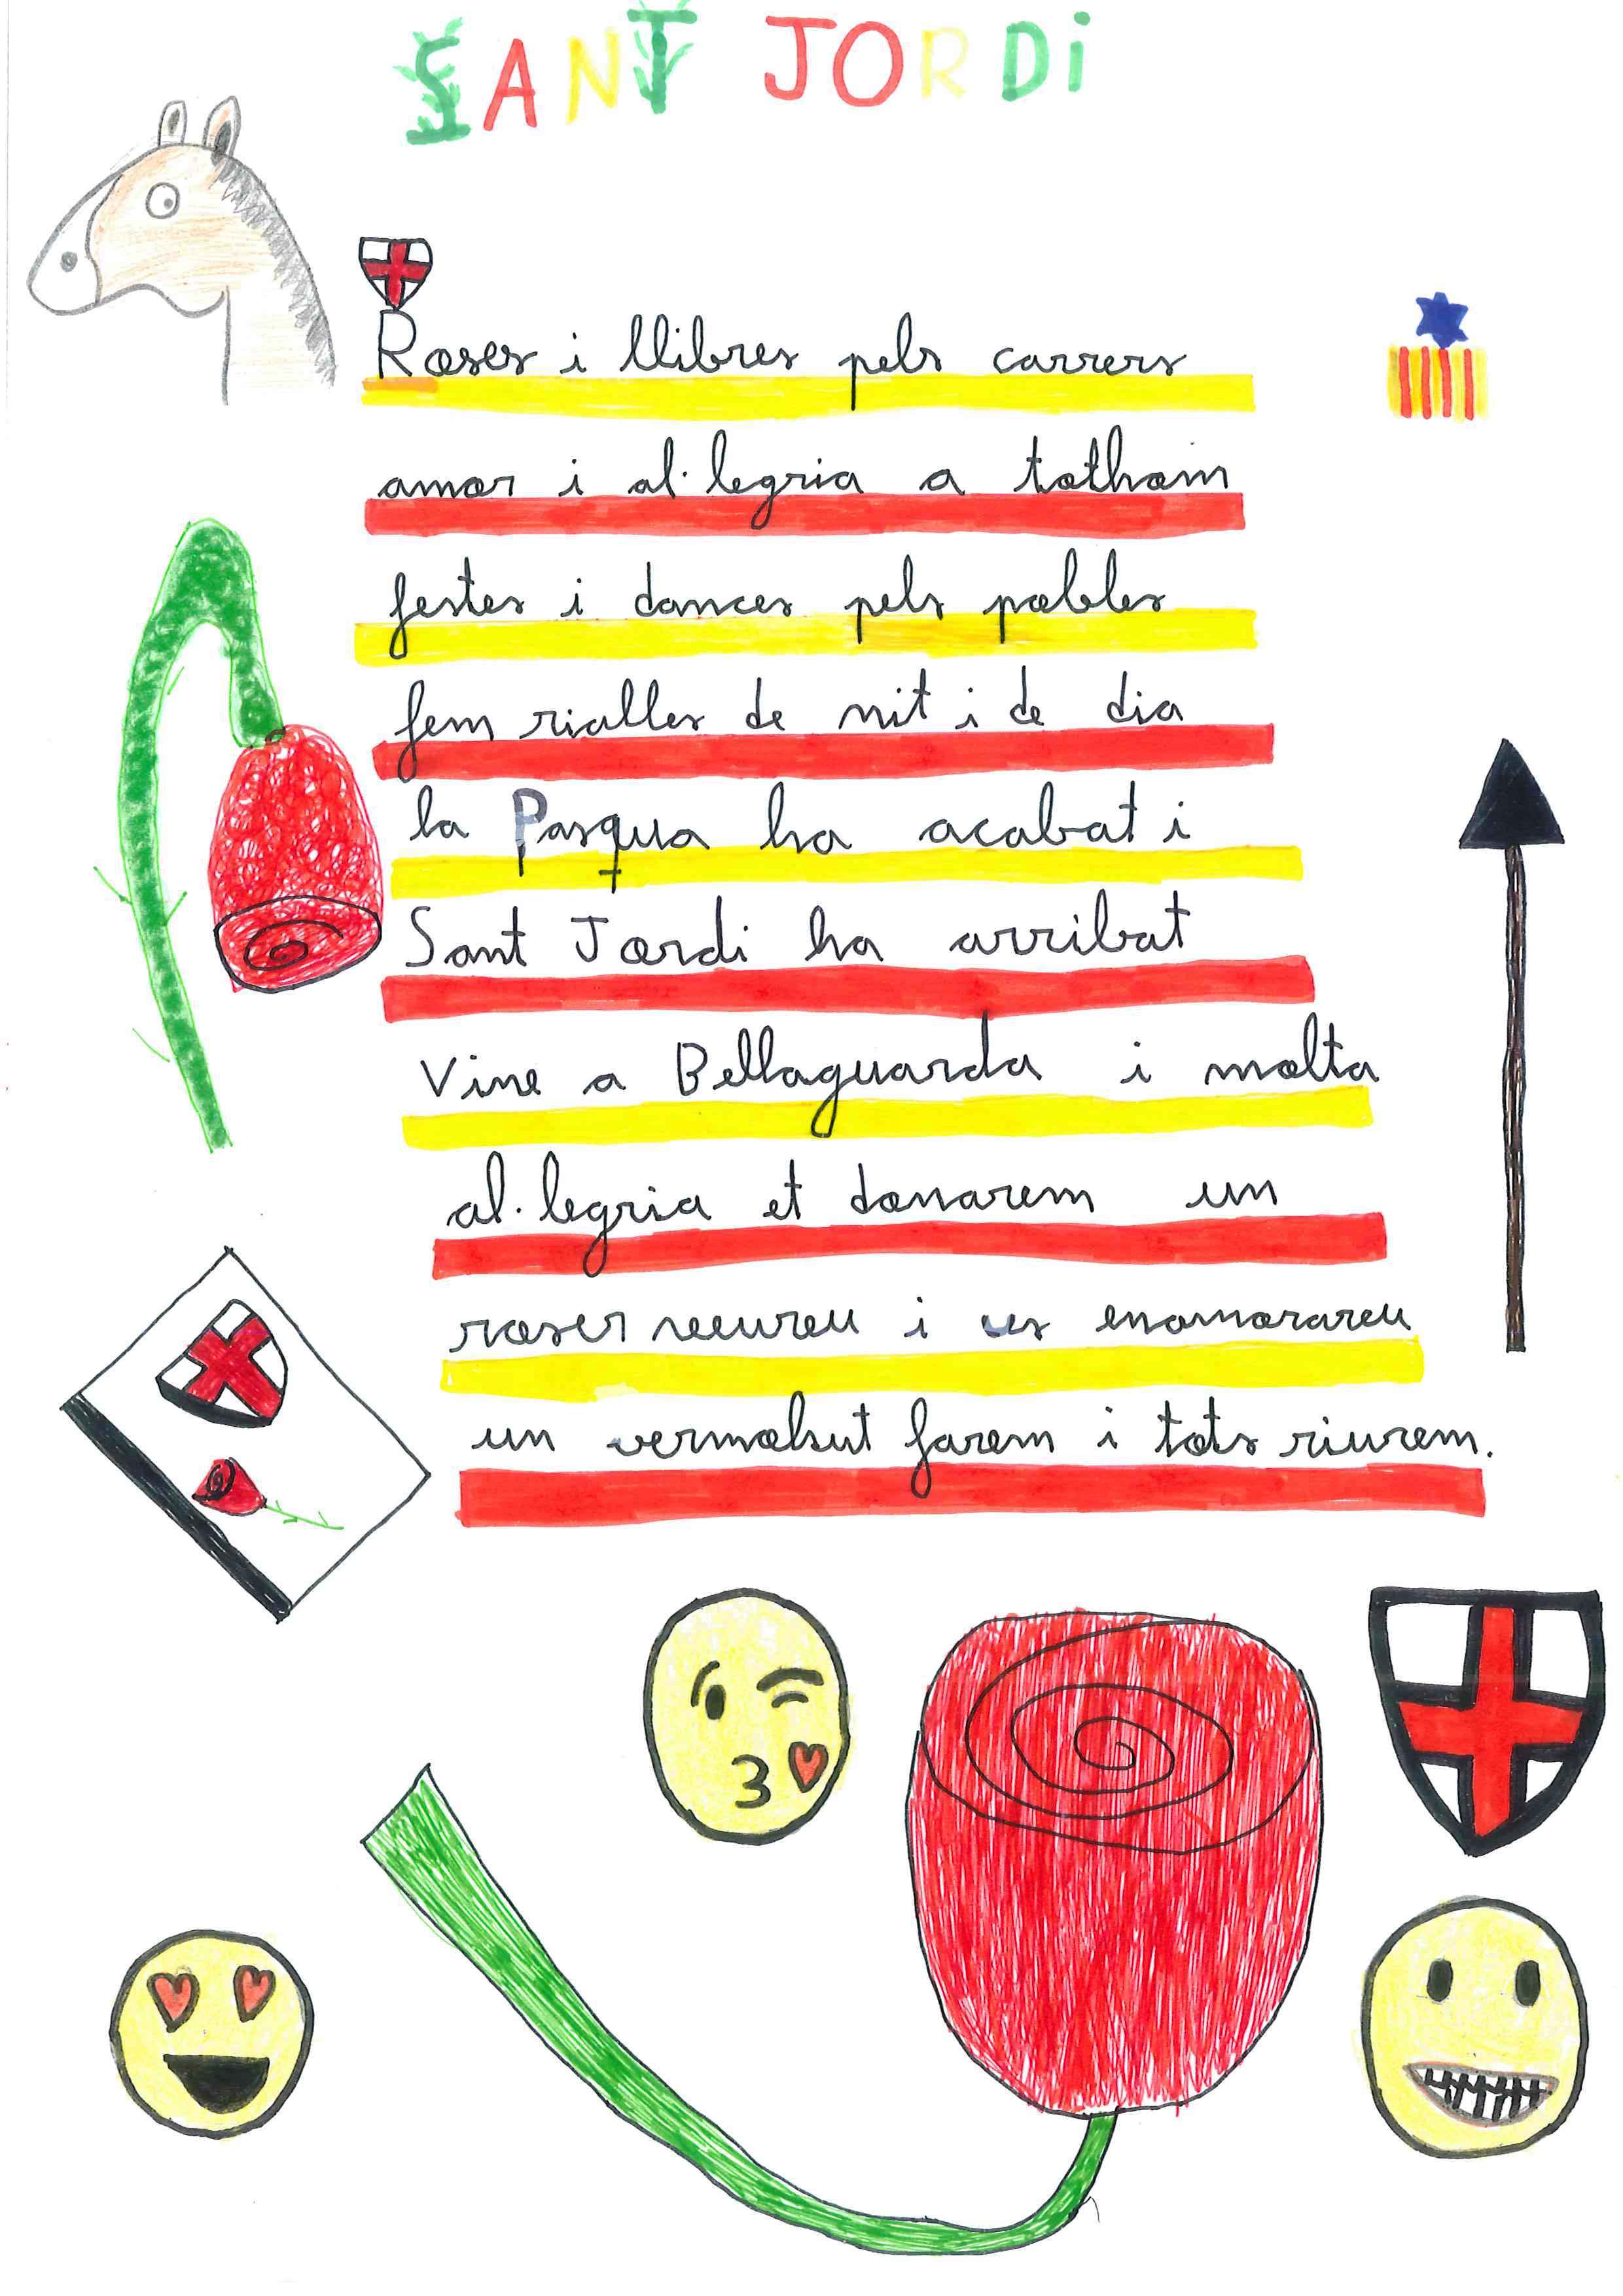 SANT JORDi
Roses i llibres pels carrers
amor i al·legria a tothom
festes i dances pels pobles
fem rialles de nit i de dia
la Pasqua ha acabat i
Sant Jordi ha arribat
Vine a Bellaguarda i molta
al·legria et donarem un
roser veureu i us enamorareu
un vermobut farem i tots riurem.